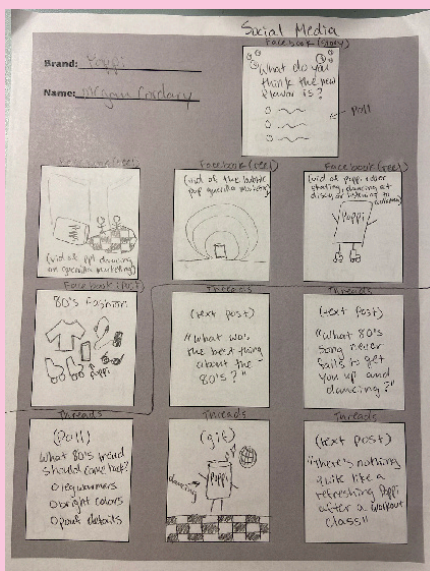 Social Media
Facebook (story)
Brand: Poppi
Name:
What do you
think the new
flavor is?
Poll
Facebook (reel)
(vid of ppl dancing
on guerilla marketing)
Facebook (reel)
(vid of the
pop guerilla marketing)
Facebook (reel)
(vid of Poppi roller
skating, dancing at
disco, or listening to
Poppi
80's fashion
Poppi
Threads
(text post)
"What
the best thing
about the
80's?"
Threads
(text post)
"What 80's
song never
fails to get
you up and
dancing?"
Threads
(Poll)
What 80's trend
should come back?
legwarmers
bright colors
details
Threads
(gif)
dancing
Poppi
Threads
(text post)
"There's nothing
like a
refreshing Poppi
after a workout
class"